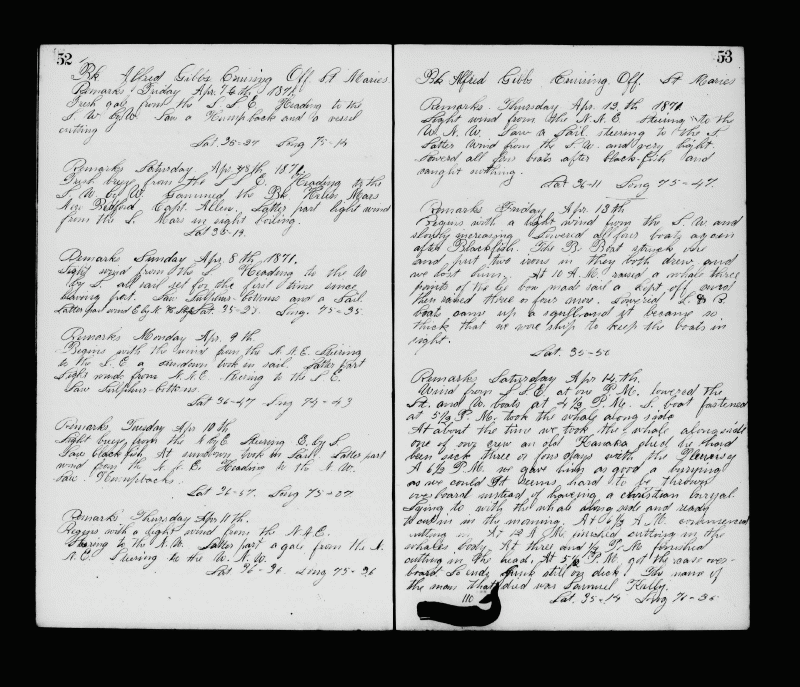 52
Bk Alfred Gibbs Cruising Off St Maries
Remarks Friday Apr. 7th 1871
Fresh gale from the S S E. Heading to the
S W by W. Saw a Humpback and a vessel
cutting
Lat 36-27 Long 75-14
Remarks Saturday Apr 8th 1871
Fresh breeze from the S S E. Heading to the
S. W. by W. Gammed the Bk. Helen Mars
New Bedford Capt. Allen. Latter part light wind
from the S. Mars in sight boiling.
Lat 35-19.
Remarks Sunday Apr. 8th 1871.
Light wind from the S. Heading to the W
by S. all sail set for the first time since
leaving port. Saw Sulphur-bottoms and a Sail.
Latter part wind E by N. Lat. 35-23. Long. 75-35
Remarks Monday Apr. 9th
Begins with the wind from the N.N.E. Steering
to the S.E. at sundown took in sail. Latter part
Light winds from N.N.E. steering to the S.E.
Saw Sulphur-bottoms.
Lat 36-47 Long 74-43
Remarks, Tuesday Apr 10th
Light breeze from the N by E Steering E. by S.
Saw blackfish. At sundown took in Sail. Latter part
wind from the N.N.E. Heading to the N.W.
Saw Humpbacks.
Lat 36-57. Long 75-37
Remarks Thursday Apr 11th.
Begins with a light wind from the N.N.E.
Steering to the N.W. Latter part a gale from the N.
N.E. Steering to the W.N.W.
Lat 36-36 Long 75-26
53
Bk Alfred Gibbs Cruising Off St Maries
Remarks Thursday Apr. 12th 1871
Light wind from the N.N.E steering to the
W.N.W. Saw a Sail steering to the S.
Latter Wind from the S.W. and very light.
Lowered all four boats after black-fish and
caught nothing.
Lat 36-11 Long 75-47.
Remarks Friday Apr. 13th
Begins with a light wind from the S.W and
slowly increasing Lowered all four boats again
after Blackfish. The B. Boat struck one
and put two irons in they both drew, and
we lost him. At 10 A.M. raised a whale three
points of the lee bow made sail & kept off and
then raised three or four more. Lowered L. & B.
boats came up a squall and it became so
thick that we wore ship to keep the boats in
sight.
Lat. 35-50
Remarks Saturday Apr 14th.
Wind from S.S.E at one P.M. lowered the
St. and W. boats at 4 1/2 P.M. S. boat fastened
at 5 1/2 P.M. took the whale along side
At about the time we took the whale along side
one of our crew an old Kanaka died he had
been sick three or four days with the Pleurisy
A 6 1/2 P.M. we gave him as good a burying
as we could It seems hard to be thrown
overboard instead of haveing a christian buryal.
Lying to with the whale along side and ready
to cut in in the morning. At 6 1/2 A.M. commenced
cutting in. At 10 A.M. finished cutting in the
whales body. At three and 1/2 P.M. finished
cutting in the head. At 5 1/2 P.M. got the case over-
board. So ends junk still on deck. The name of
the man that died was Samuel Kelly.
110
Lat. 35-14 Long 76-36